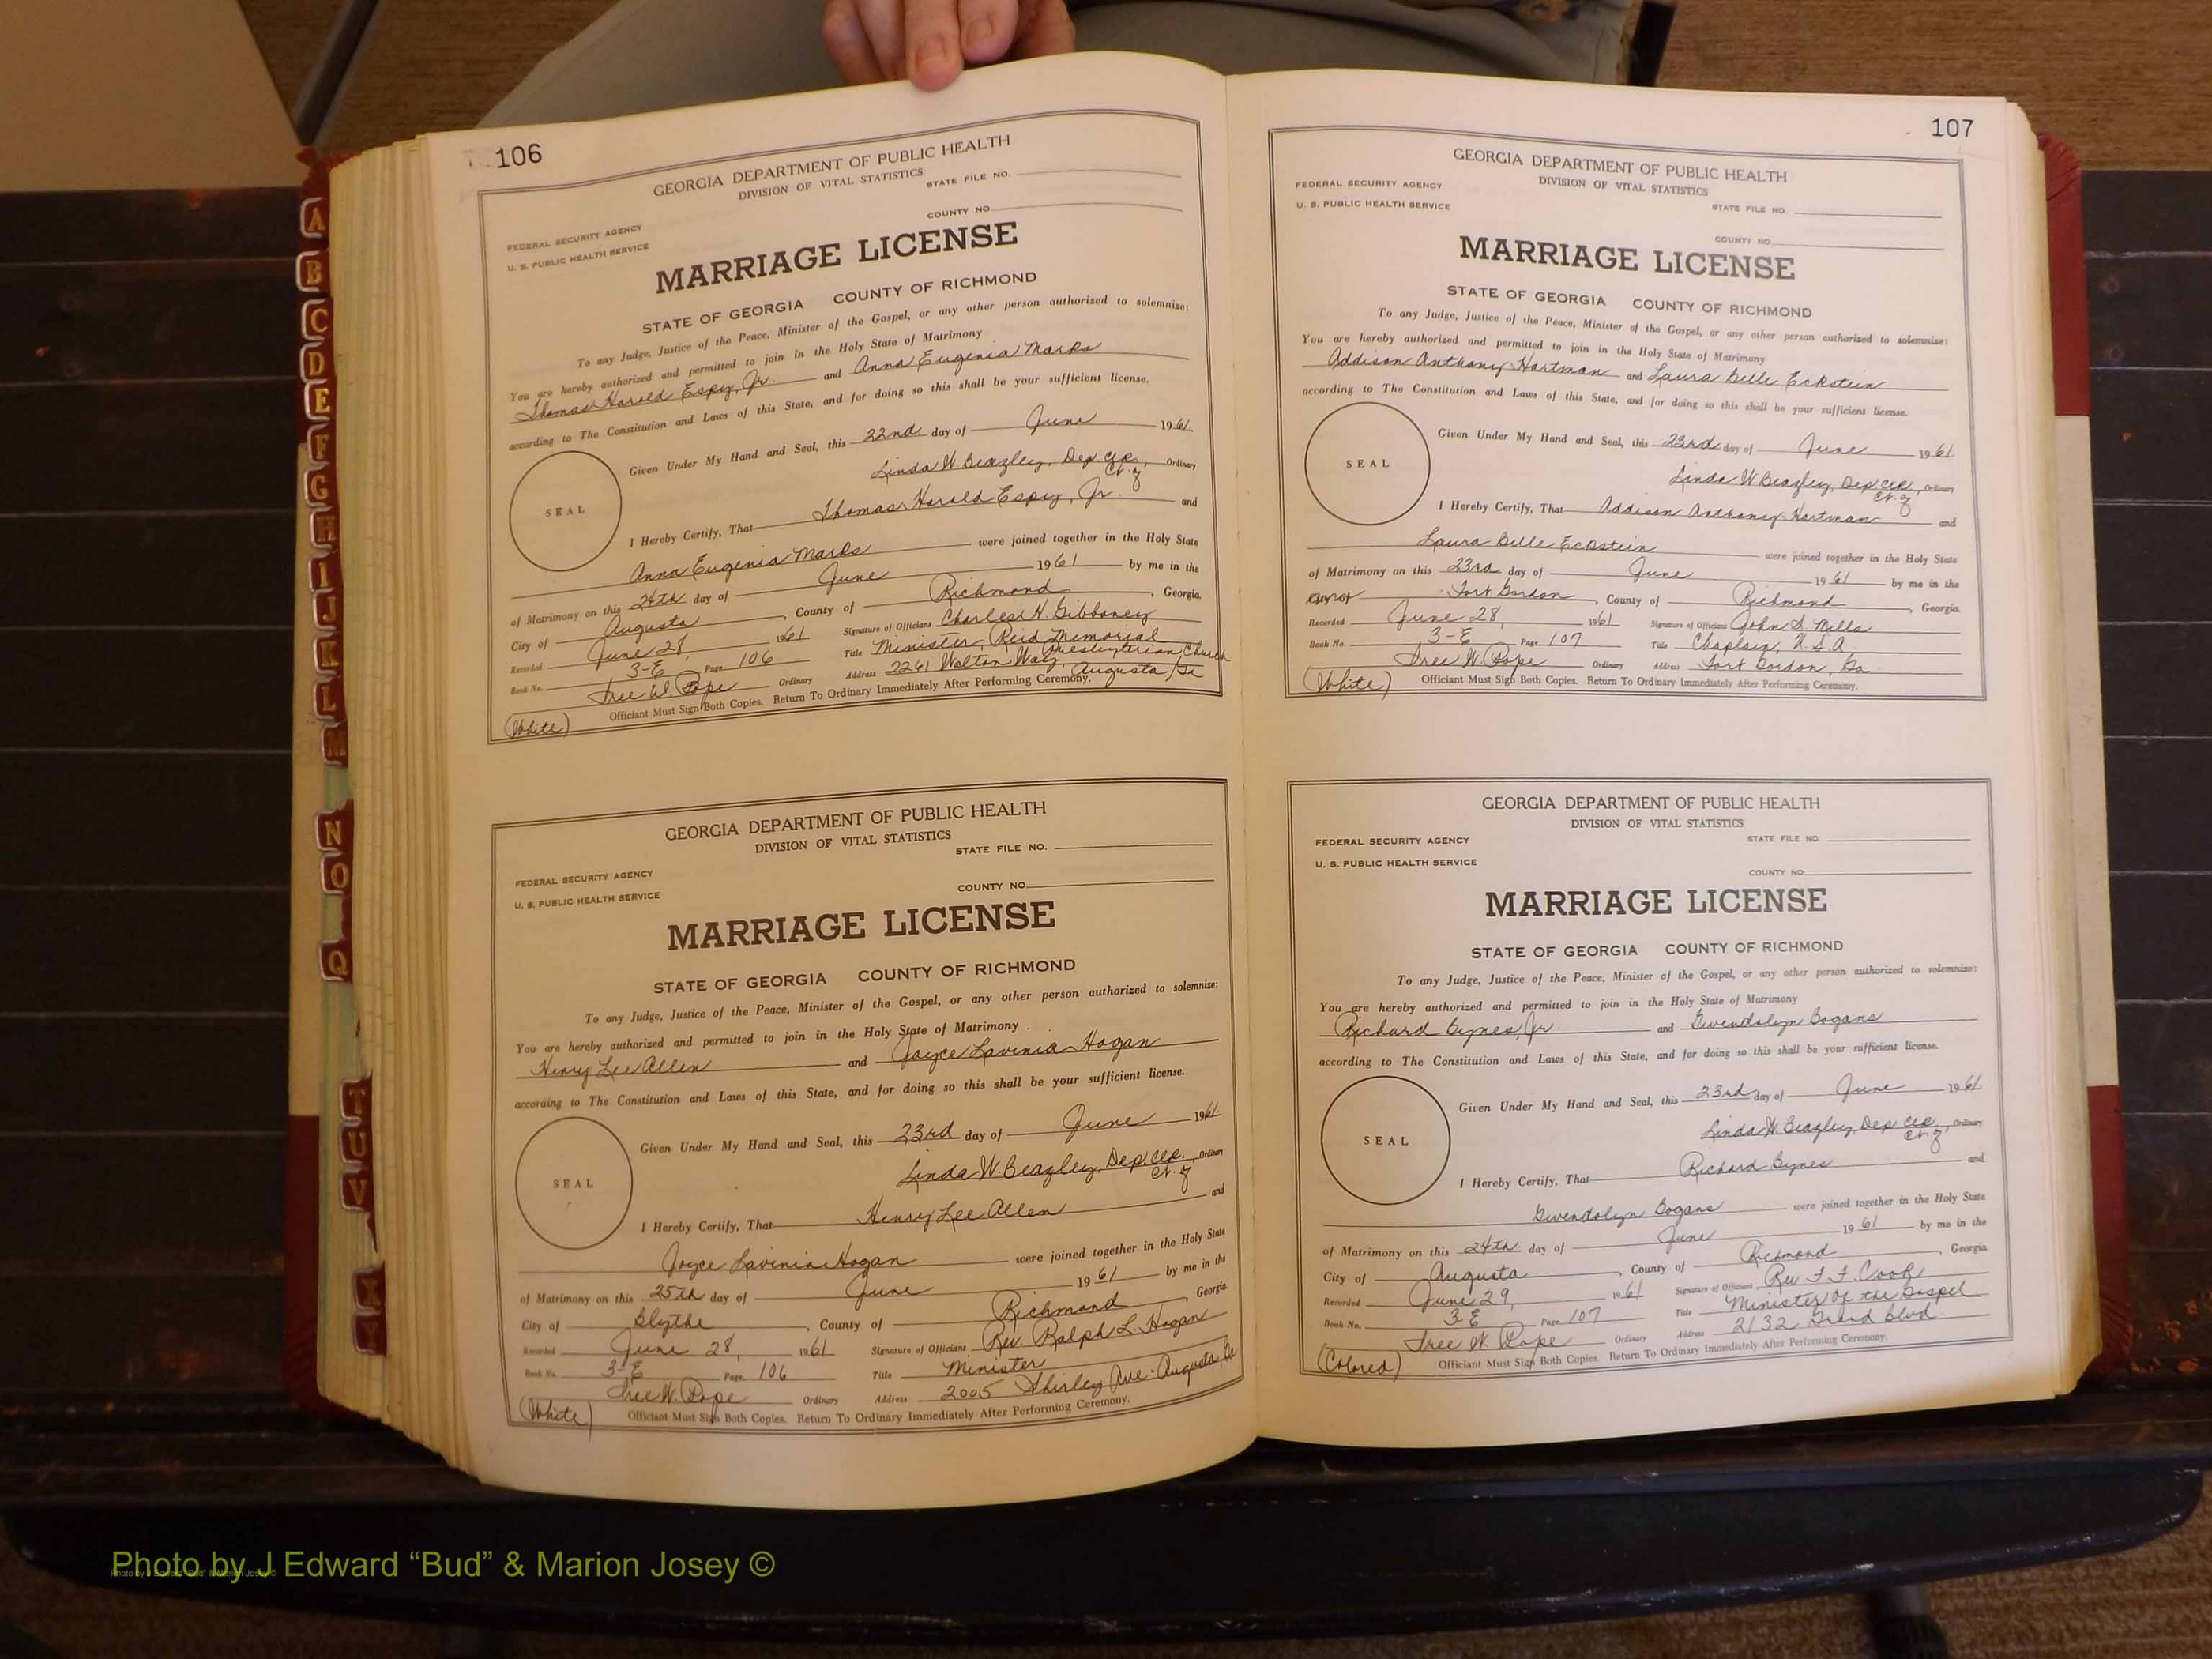 106
GEORGIA DEPARTMENT OF PUBLIC HEALTH
DIVISION OF VITAL STATISTICS
STATE FILE NO.
FEDERAL SECURITY AGENCY
COUNTY NO.
U. S. PUBLIC HEALTH SERVICE
MARRIAGE LICENSE
STATE OF GEORGIA COUNTY OF RICHMOND
To any Judge, Justice of the Peace, Minister of the Gospel, or any other person authorized to solemnize:
You are hereby authorized and permitted to join in the Holy State of Matrimony
Thomas Harold Espy, Jr. and Anna Eugenia Marks
according to The Constitution and Laws of this State, and for doing so this shall be your sufficient license.
Given Under My Hand and Seal, this 22nd day of June 1961
Linda W. Beazley, Dep. Clk. Ordinary
SEAL
I Hereby Certify, That Thomas Harold Espy, Jr. and
Anna Eugenia Marks were joined together in the Holy State
of Matrimony on this 24th day of June 1961 by me in the
City of Augusta, County of Richmond, Georgia.
Recorded June 28, 1961 Signature of Officiant Charles H. Gibboney
Book No. 3-E Page 106 Title Minister, Reid Memorial Presbyterian Church
Ordinary Address 2261 Walton Way, Augusta, Ga
(White) Officiant Must Sign Both Copies. Return To Ordinary Immediately After Performing Ceremony.
GEORGIA DEPARTMENT OF PUBLIC HEALTH
DIVISION OF VITAL STATISTICS
STATE FILE NO.
FEDERAL SECURITY AGENCY
COUNTY NO.
U. S. PUBLIC HEALTH SERVICE
MARRIAGE LICENSE
STATE OF GEORGIA COUNTY OF RICHMOND
To any Judge, Justice of the Peace, Minister of the Gospel, or any other person authorized to solemnize:
You are hereby authorized and permitted to join in the Holy State of Matrimony
Henry Lee Allen and Joyce Lavinia Hogan
according to The Constitution and Laws of this State, and for doing so this shall be your sufficient license.
Given Under My Hand and Seal, this 23rd day of June 1961
Linda W. Beazley, Dep. Clk. Ordinary
SEAL
I Hereby Certify, That Henry Lee Allen and
Joyce Lavinia Hogan were joined together in the Holy State
of Matrimony on this 25th day of June 1961 by me in the
City of Blythe, County of Richmond, Georgia
Recorded June 28, 1961 Signature of Officiant Rev Ralph L. Hogan
Book No. 3-E Page 106 Title Minister
Ordinary Address 2005 Shirley Ave - Augusta, Ga
(White) Officiant Must Sign Both Copies. Return To Ordinary Immediately After Performing Ceremony.
107
GEORGIA DEPARTMENT OF PUBLIC HEALTH
DIVISION OF VITAL STATISTICS
FEDERAL SECURITY AGENCY
U. S. PUBLIC HEALTH SERVICE
STATE FILE NO.
COUNTY NO.
MARRIAGE LICENSE
STATE OF GEORGIA COUNTY OF RICHMOND
To any Judge, Justice of the Peace, Minister of the Gospel, or any other person authorized to solemnize:
You are hereby authorized and permitted to join in the Holy State of Matrimony
Addison Anthony Hartman and Laura Belle Eckstein
according to The Constitution and Laws of this State, and for doing so this shall be your sufficient license.
Given Under My Hand and Seal, this 23rd day of June 1961
Linda W Beazley, Dep Clk, Ordinary
SEAL
I Hereby Certify, That Addison Anthony Hartman and
Laura Belle Eckstein were joined together in the Holy State
of Matrimony on this 23rd day of June 1961 by me in the
City of Fort Gordon, County of Richmond, Georgia.
Recorded June 28, 1961 Signature of Officiant John S. Mills
Book No. 3-E Page 107 Title Chaplain, U.S.A.
Ordinary Address Fort Gordon, Ga.
(White) Officiant Must Sign Both Copies. Return To Ordinary Immediately After Performing Ceremony.
GEORGIA DEPARTMENT OF PUBLIC HEALTH
DIVISION OF VITAL STATISTICS
FEDERAL SECURITY AGENCY
STATE FILE NO.
U. S. PUBLIC HEALTH SERVICE
COUNTY NO.
MARRIAGE LICENSE
STATE OF GEORGIA COUNTY OF RICHMOND
To any Judge, Justice of the Peace, Minister of the Gospel, or any other person authorized to solemnize:
You are hereby authorized and permitted to join in the Holy State of Matrimony
Richard Bynes, Jr. and Gwendolyn Bogans
according to The Constitution and Laws of this State, and for doing so this shall be your sufficient license.
Given Under My Hand and Seal, this 23rd day of June 1961
Linda W. Beazley, Dep Clk, Ordinary
SEAL
I Hereby Certify, That Richard Bynes and
Gwendolyn Bogans were joined together in the Holy State
of Matrimony on this 24th day of June 1961 by me in the
City of Augusta, County of Richmond, Georgia
Recorded June 29, 1961 Signature of Officiant Rev F. F. Cook
Book No. 3 E Page 107 Title Minister of the Gospel
Ordinary Address 2132 Grand Blvd.
(Colored) Officiant Must Sign Both Copies. Return To Ordinary Immediately After Performing Ceremony.
A
B
C
D
E
F
G
H
I
J
K
L
M
N
O
Q
T
U
V
X
Y
Photo by J Edward “Bud” & Marion Josey ©
Photo by J Edward "Bud" & Marion Josey ©